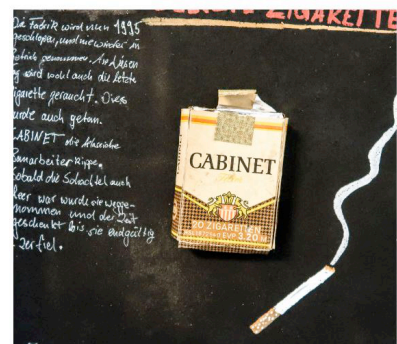 ZIGARETTE
Die Fabrik wird nun 1995
geschlossen, und nie wieder in
Betrieb genommen. An diesem
wird wohl auch die letzte
Zigarette geraucht. Dies
wurde auch getan.
CABINET die klassische
Bauarbeiter Kippe.
Sobald die Schachtel auch
leer war wurde sie wegge-
nommen und der Zeit
geschenkt bis sie endgültig
zerfiel.
CABINET
20 ZIGARETTEN
EVP 3,20 M